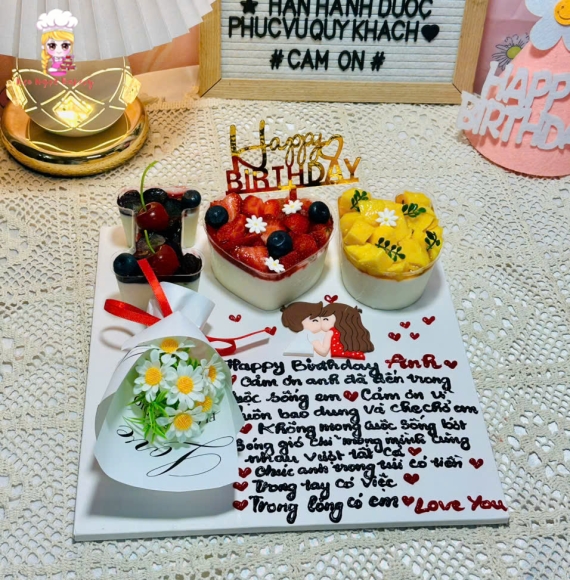 HÂN HẠNH ĐƯỢC
PHỤC VỤ QUÝ KHÁCH
# CẢM ƠN #
HAPPY
BIRTHDAY
Happy
BIRTHDAY
Happy Birthday Anh
Cảm ơn anh đã đến trong
cuộc sống em Cảm ơn vì
luôn bao dung và che chở em
Không mong cuộc sống bớt
sóng gió chỉ mong mình cùng
nhau vượt tất cả
Chúc anh trong túi có tiền
Trong tay có việc
Trong lòng có em Love You
Love